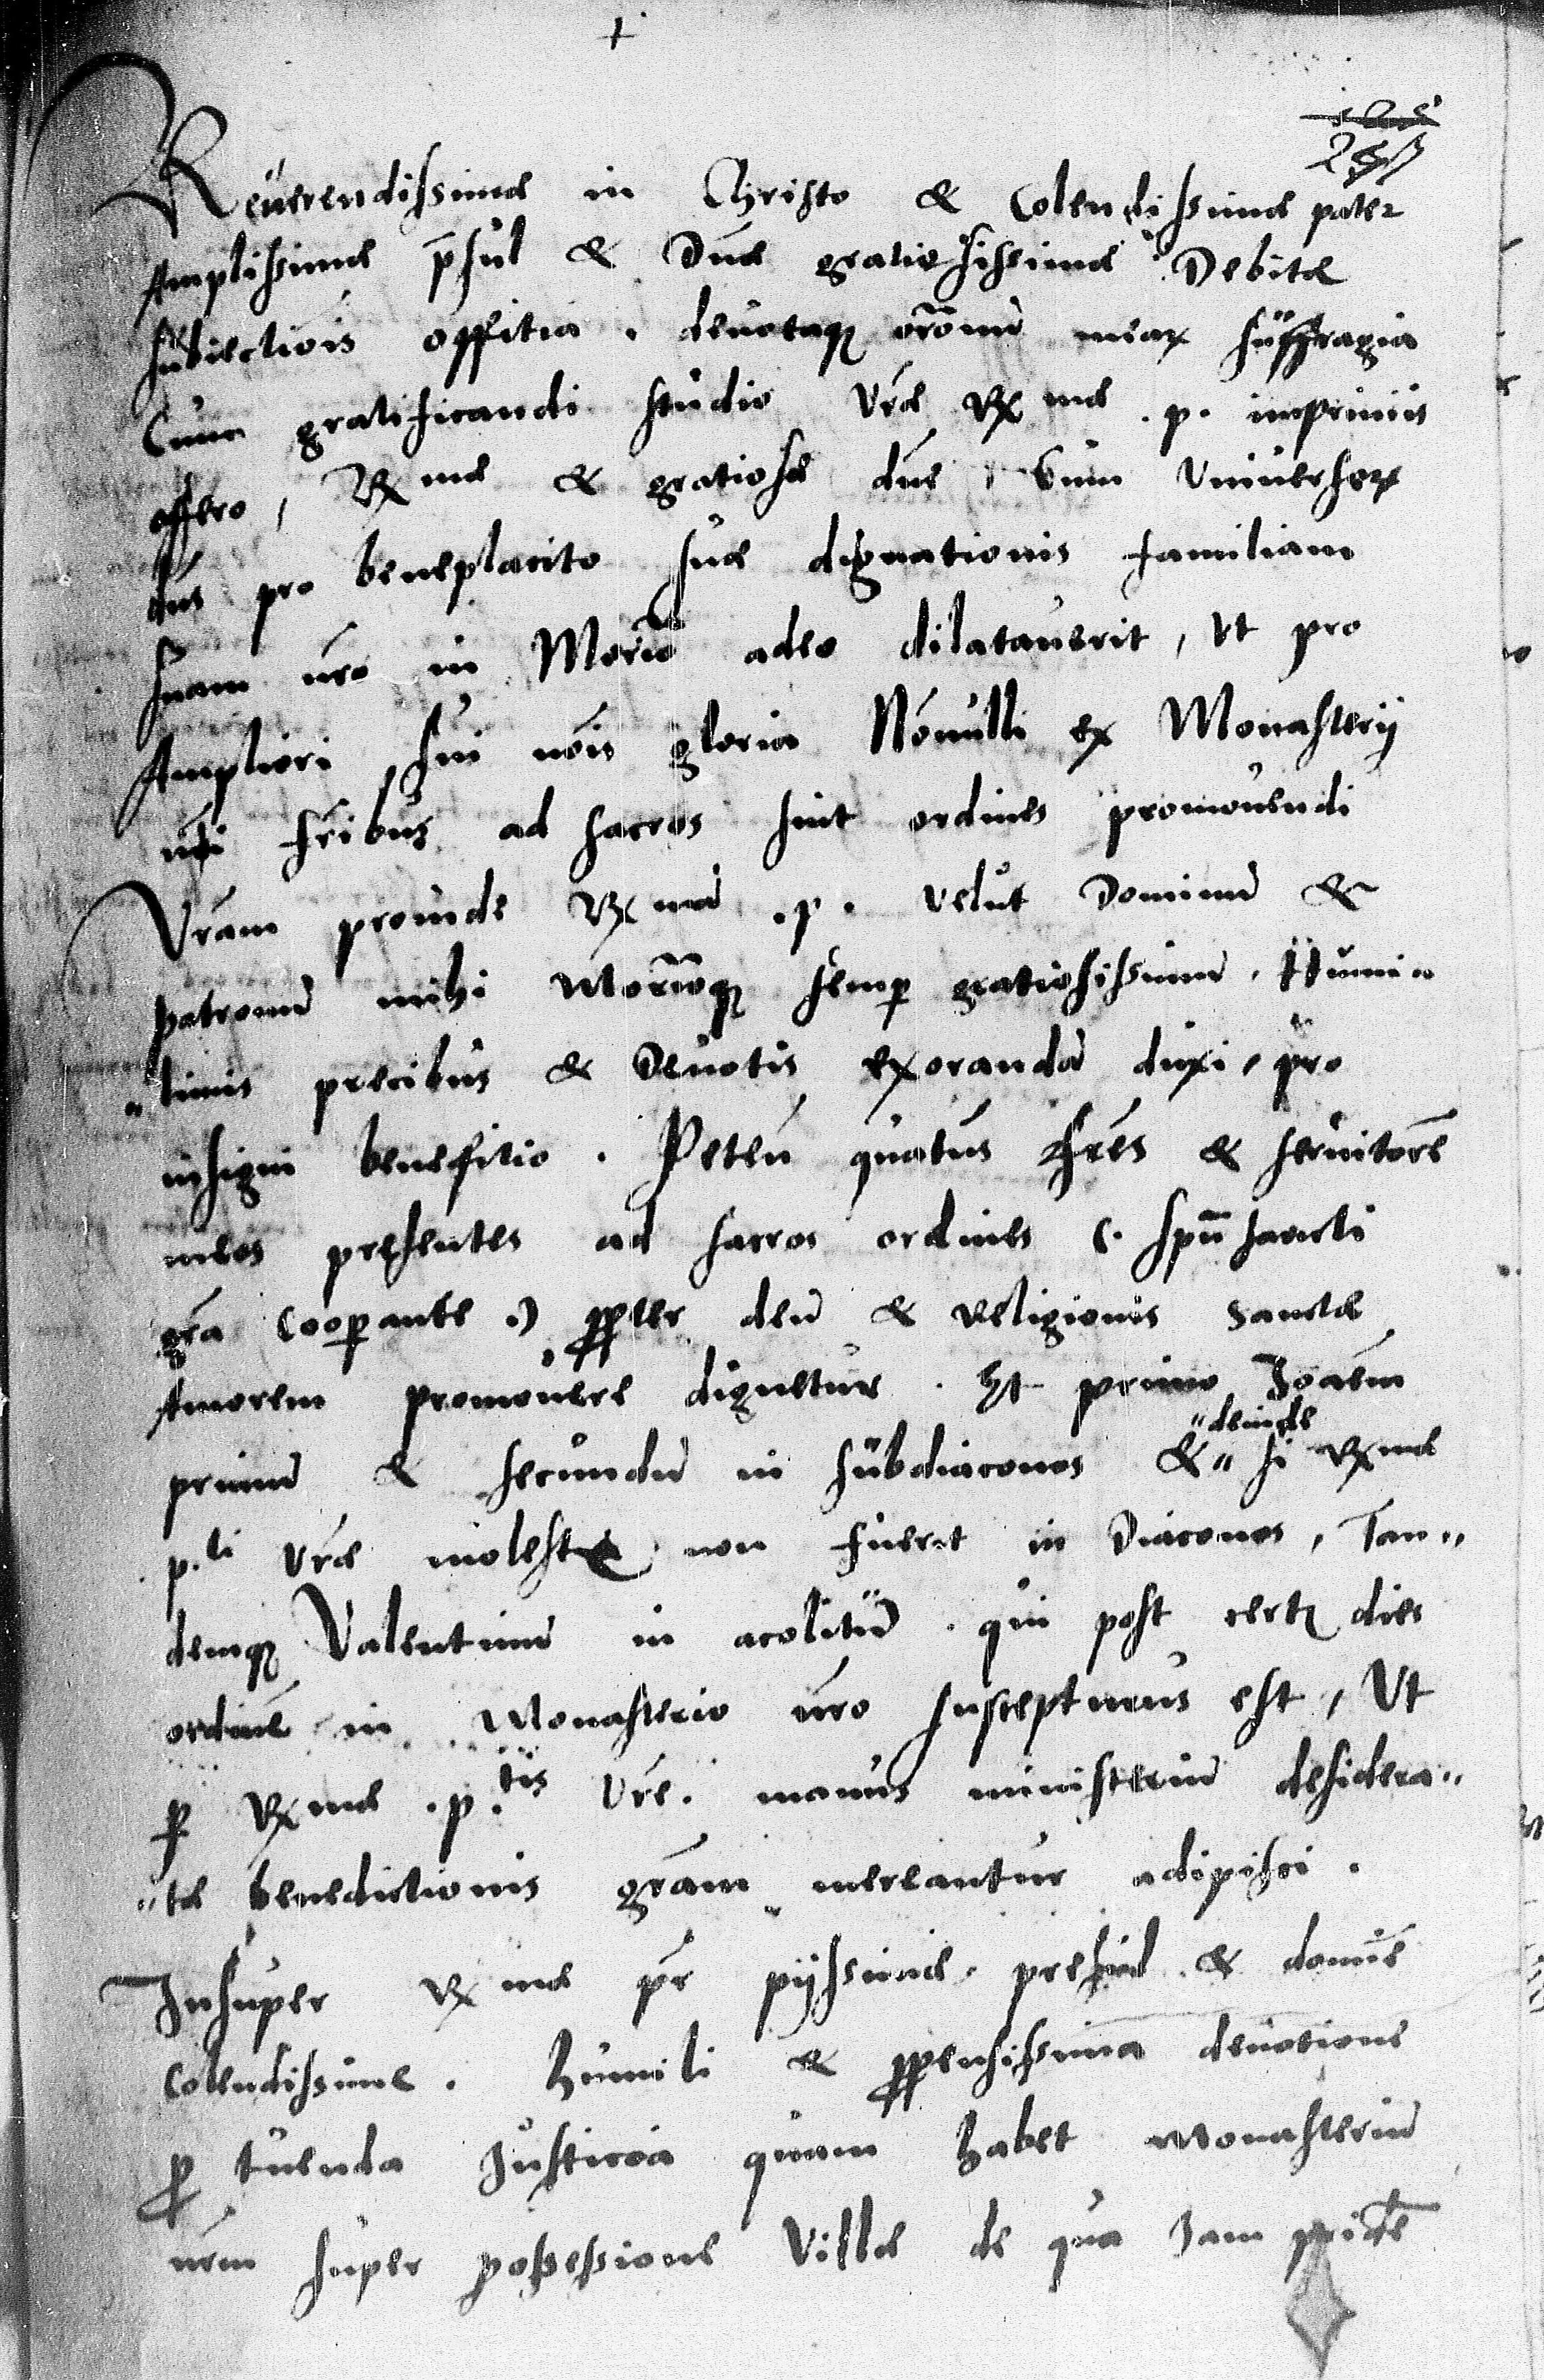 +
Reuerendissime in Christo & Colendissime pater
Amplissime p̄sul & Dn̄e gratiosissime. Debite
subiectiōis offitia. deuotaq; or̄onū mear̄ suffragia
Cum gratificandi studio Vr̄e Rx me .p. imprimis
offero, Rx me & gratiose dn̄e, Cum Vniuersor̄
dn̄s pro beneplacito sue dignationis familiam
suam nr̄o in Mōrio adeo dilatauerit, Vt pro
Ampliori sui nōis gloria Nōnulli ex Monasterij
nr̄i fr̄ibus ad sacros sint ordines promouendi
Vr̄am proinde Rx mā .p. velut Dominū &
patronū mihi Mōrioq; semp̱ gratiosissimū. Humi„
„limis precibus & Deuotis exorandā duxi, pro
insigni benefitio. Peteñ quaten̄us fr̄es & seruitore
meos presentes ad sacros ordines (. spūs sancti
gr̄a Coop̱ante .) ꝓpter deū & Religionis Sancte
Amorem promouere dignetur. Et primo Joānem
„deinde
primū & secundū in subdiaconos &„ si Rx me
p.ti Vr̄e moleste non fuerit in Diaconos, Tan„
demq; Valentinū in acolitū. qui post cert. dies
ordinē in Monasterio nr̄o suscepturus est, Vt
p̱ Rx me .p.tis Vr̄e. manus ministeriū desidera„
„te benedictionis gr̄am mereantur adipisci.
Insuper Rx me pr̄ pijssime. presul & domīe
Colendissime. humili & ꝓpensissima deuotione
ꝓ tuenda Justicia quam habet Monasteriū
nr̄m super possessione Ville de qua Jam pridē